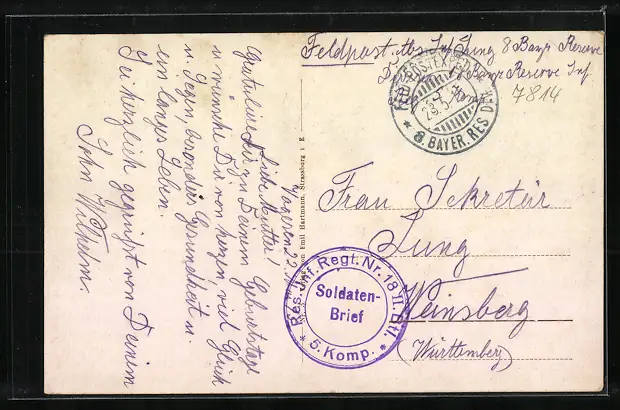 Feldpost. Abs. Inf. Jung 8 Bayr Reserve
Bayr Reserve Inf.
Komp.
7814
FELDPOSTEXPED.
8. BAYER. RES. DIV.
Frau Sekretär
Jung
Weinsberg
(Württemberg)
Res. Inf. Regt. Nr. 18 II. Btl.
Soldaten-
Brief
* 5. Komp. *
Emil Hartmann, Strassburg i. E.
Liebe Mutter!
Gratuliere Dir zu Deinem Geburtstage
u. wünsche Dir von Herzen, viel Glück
u. Segen, besonders Gesundheit u.
ein langes Leben.
Sei herzlich gegrüßt von Deinem
Sohn Wilhelm.